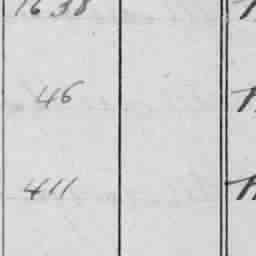 1638
46
411